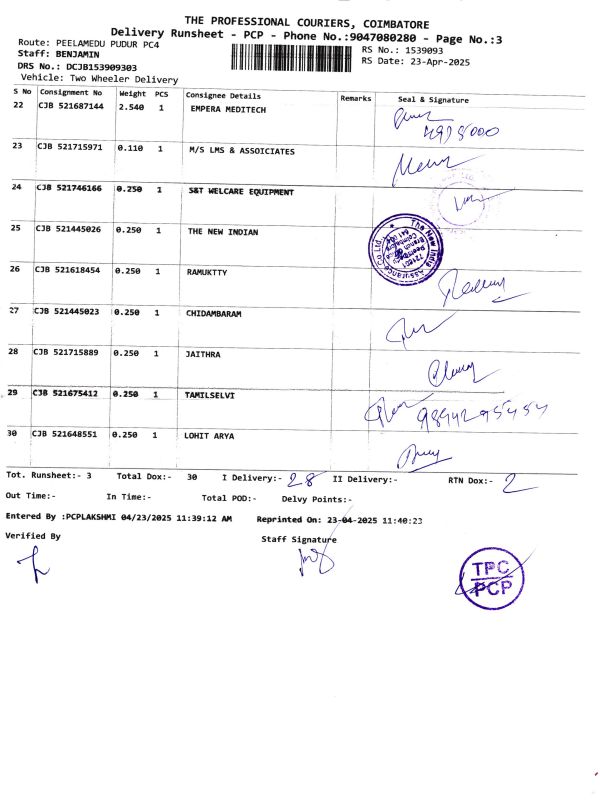 THE PROFESSIONAL COURIERS, COIMBATORE
Delivery Runsheet - PCP - Phone No.:9047080280 - Page No.:3
Route: PEELAMEDU PUDUR PC4
RS No.: 1539093
Staff: BENJAMIN
RS Date: 23-Apr-2025
DRS No.: DCJB153909303
Vehicle: Two Wheeler Delivery
S No Consignment No Weight PCS Consignee Details Remarks Seal & Signature
22 CJB 521687144 2.540 1 EMPERA MEDITECH
23 CJB 521715971 0.110 1 M/S LMS & ASSOICIATES
24 CJB 521746166 0.250 1 S&T WELCARE EQUIPMENT
25 CJB 521445026 0.250 1 THE NEW INDIAN
The New India Assurance Co Ltd.
26 CJB 521618454 0.250 1 RAMUKTTY
27 CJB 521445023 0.250 1 CHIDAMBARAM
28 CJB 521715889 0.250 1 JAITHRA
29 CJB 521675412 0.250 1 TAMILSELVI
9894295454
30 CJB 521648551 0.250 1 LOHIT ARYA
Tot. Runsheet:- 3 Total Dox:- 30 I Delivery:- 28 II Delivery:- RTN Dox:- 2
Out Time:- In Time:- Total POD:- Delvy Points:-
Entered By :PCPLAKSHMI 04/23/2025 11:39:12 AM Reprinted On: 23-04-2025 11:40:23
Verified By
Staff Signature
TPC
PCP